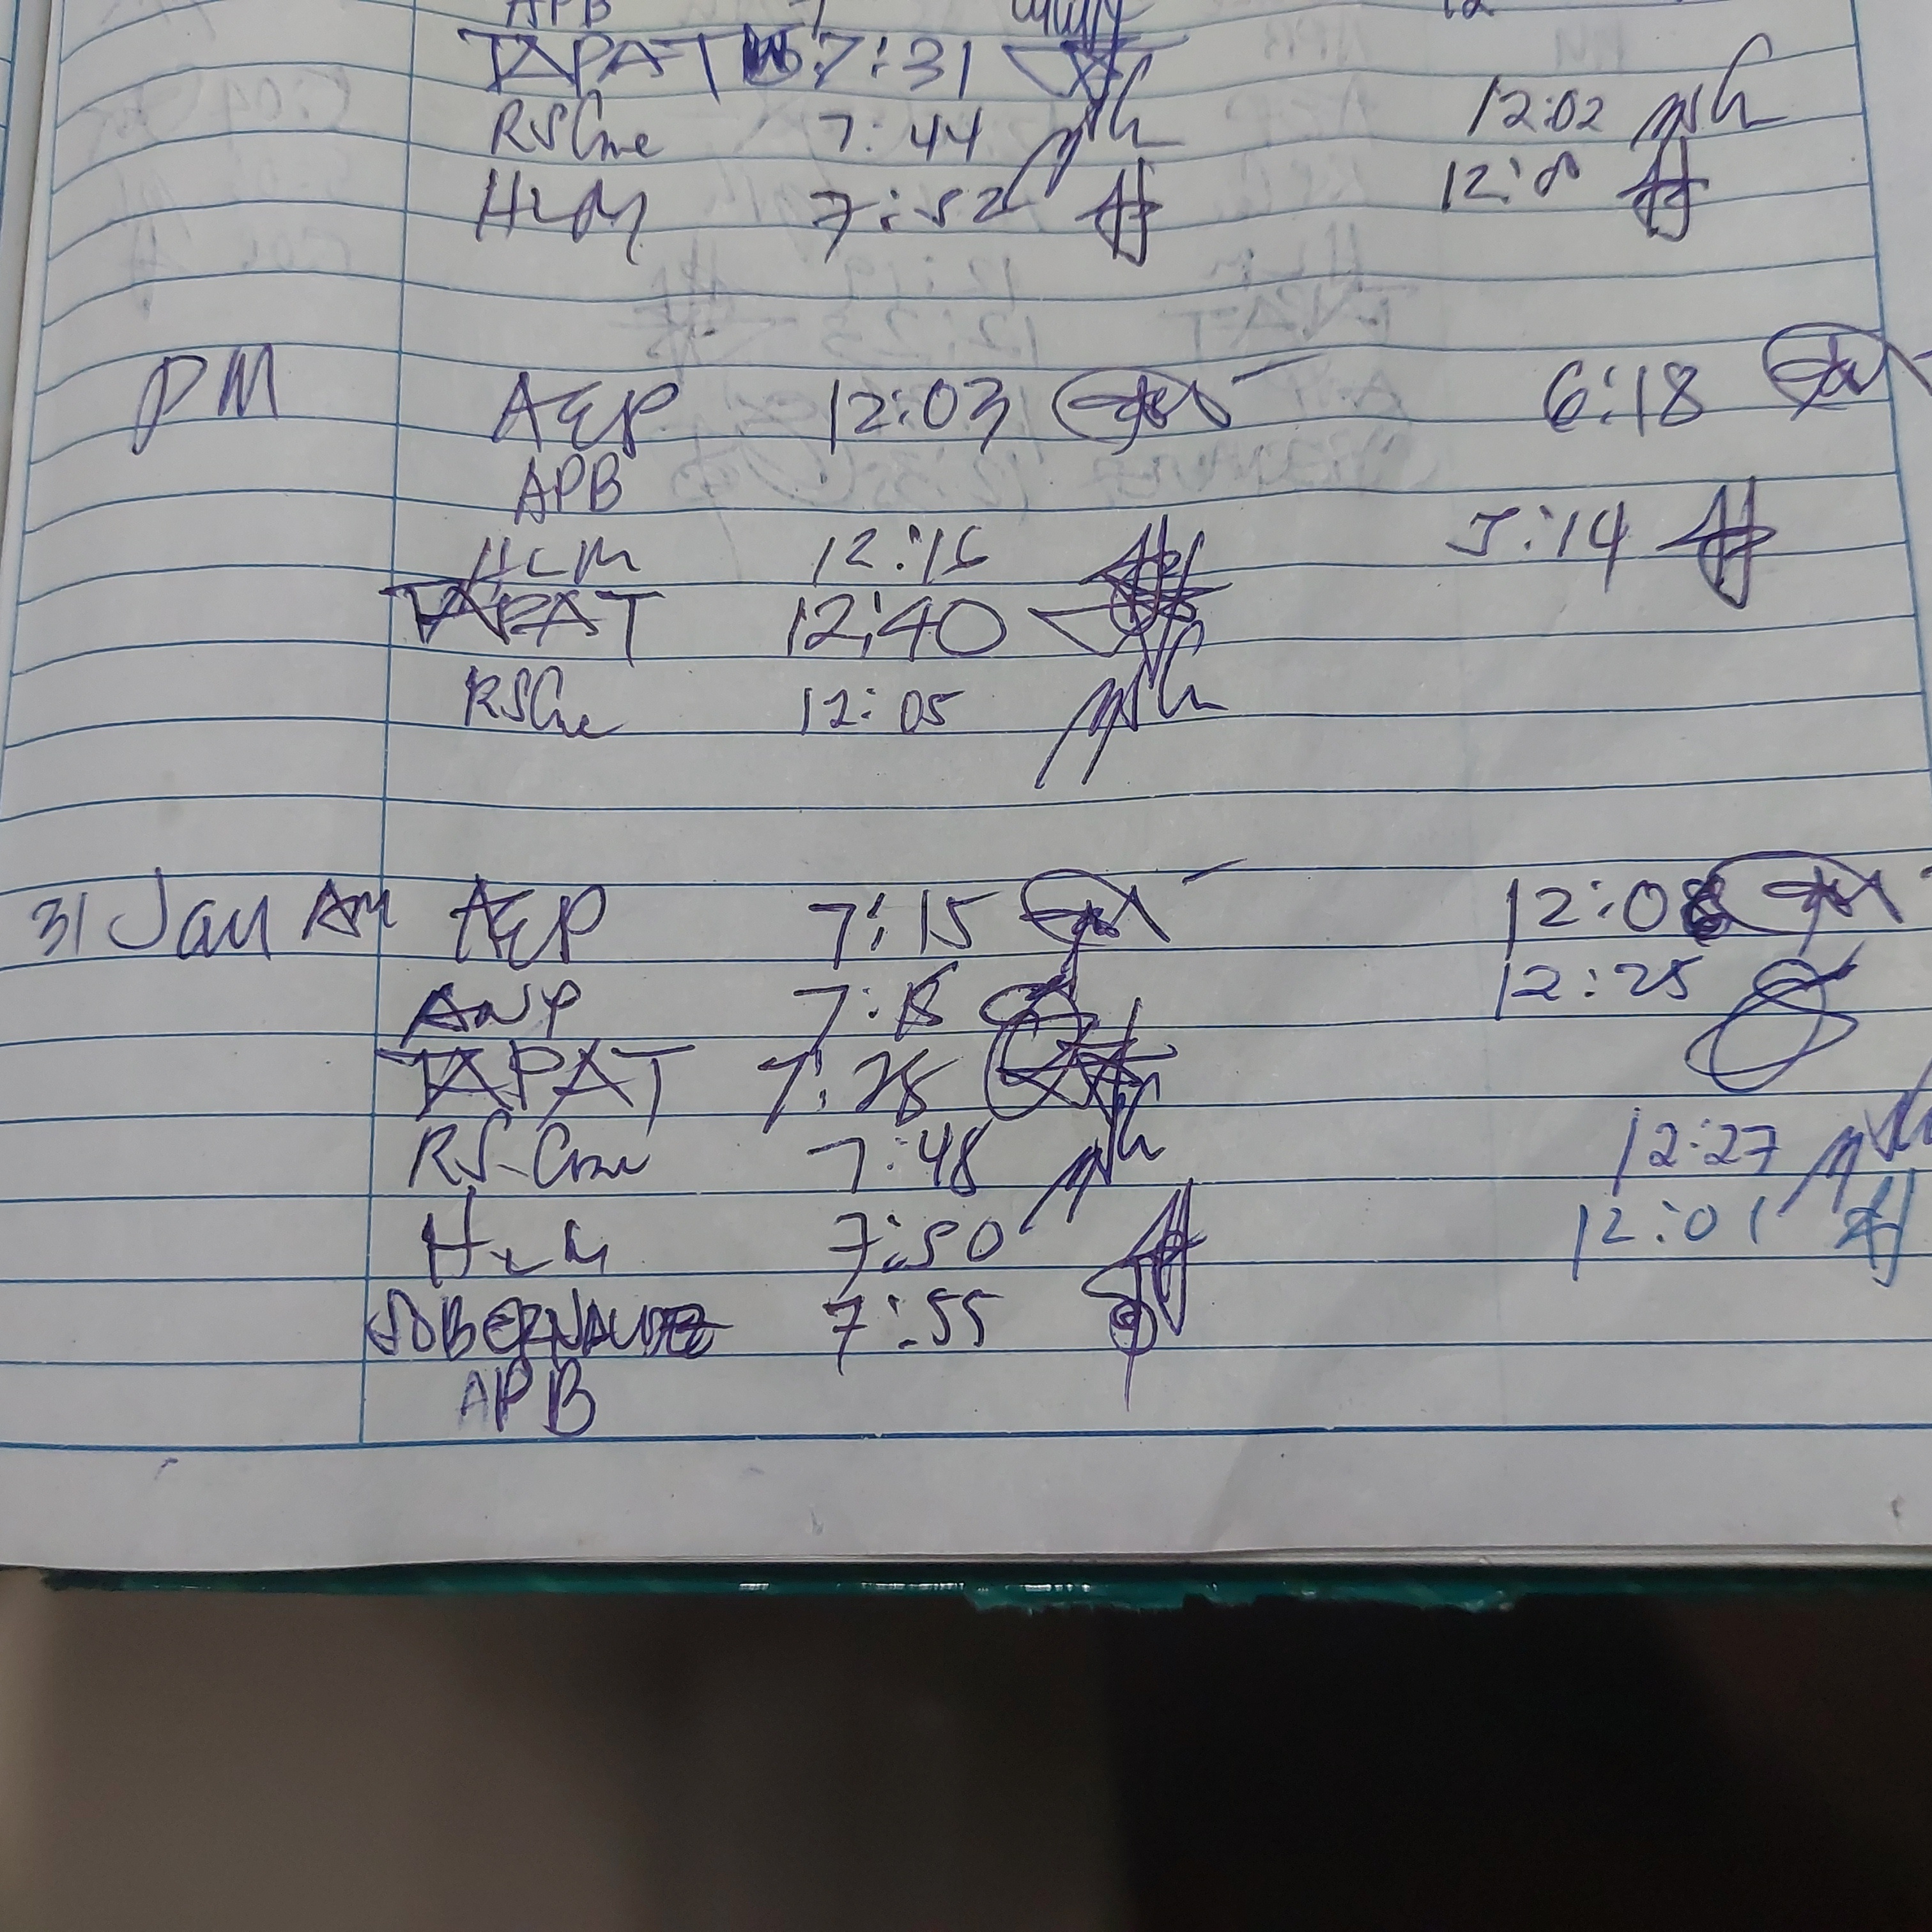 APB
TAPAT 7:31
RSCruz 7:44 12:02
HLM 7:52
PM AEP 12:03 6:18
APB
HLM 12:16 5:14
TAPAT 12:40
RSCruz 12:05
31 Jan AM AEP 7:15 12:08
ANP 12:25
TAPAT 7:28
RS Cruz 7:48 12:27
HLM 7:50 12:01
7:55
APB